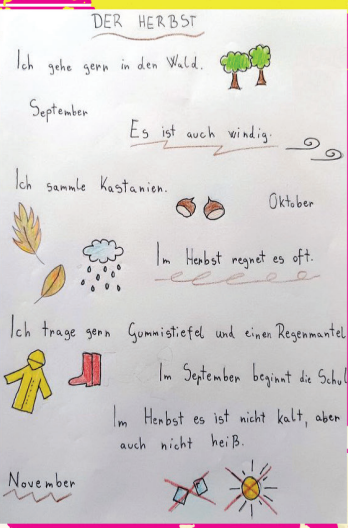 DER HERBST
Ich gehe gern in den Wald.
September
Es ist auch windig.
Ich sammle Kastanien.
Oktober
Im Herbst regnet es oft.
Ich trage gern Gummistiefel und einen Regenmantel
Im September beginnt die Schul
Im Herbst es ist nicht kalt, aber
auch nicht heiß.
November